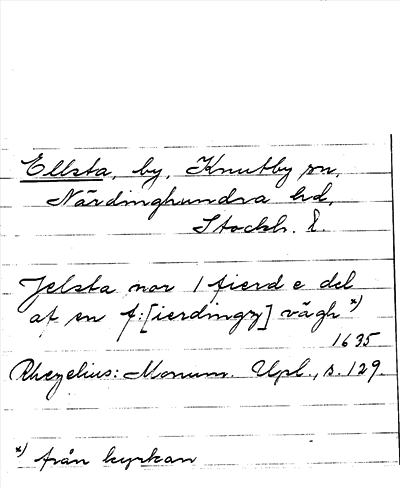 Ellsta, by, Knutby sn,
Närdinghundra hd,
Stockh. l.
Jelsta nor 1 fierd e del
af en f:[ierdingz] vägh x)
1635
Rhezelius: Monum. Upl., s. 129.
x) från kyrkan